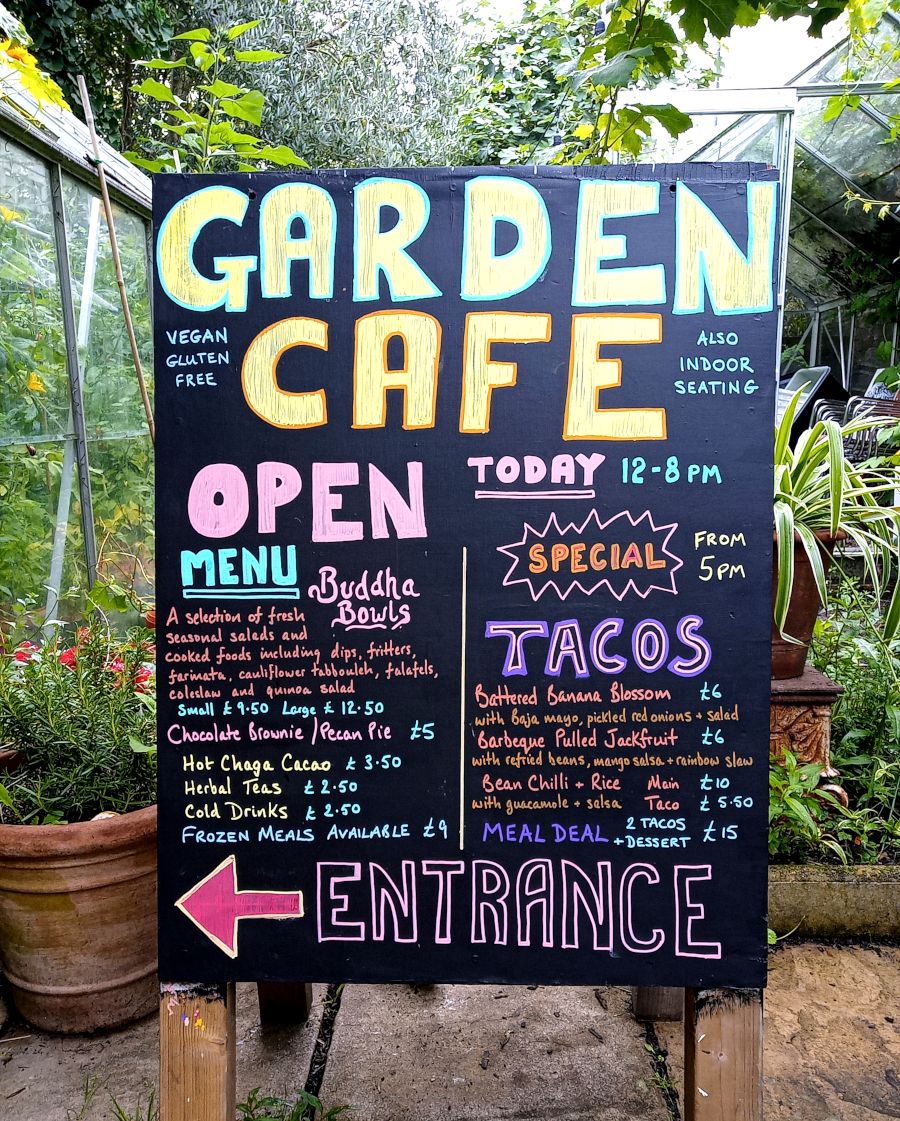 GARDEN
CAFE
VEGAN
GLUTEN
FREE
ALSO
INDOOR
SEATING
OPEN
TODAY 12-8PM
MENU
Buddha
Bowls
A selection of fresh
seasonal salads and
cooked foods including dips, fritters,
farinata, cauliflower tabbouleh, falafels,
coleslaw and quinoa salad
Small £9.50 Large £12.50
Chocolate Brownie/Pecan Pie £5
Hot Chaga Cacao £3.50
Herbal Teas £2.50
Cold Drinks £2.50
FROZEN MEALS AVAILABLE £9
SPECIAL
FROM
5PM
TACOS
Battered Banana Blossom £6
with Baja mayo, pickled red onions + salad
Barbeque Pulled Jackfruit £6
with refried beans, mango salsa + rainbow slaw
Bean Chilli + Rice Main £10
with guacamole + salsa Taco £5.50
MEAL DEAL 2 TACOS + DESSERT £15
ENTRANCE